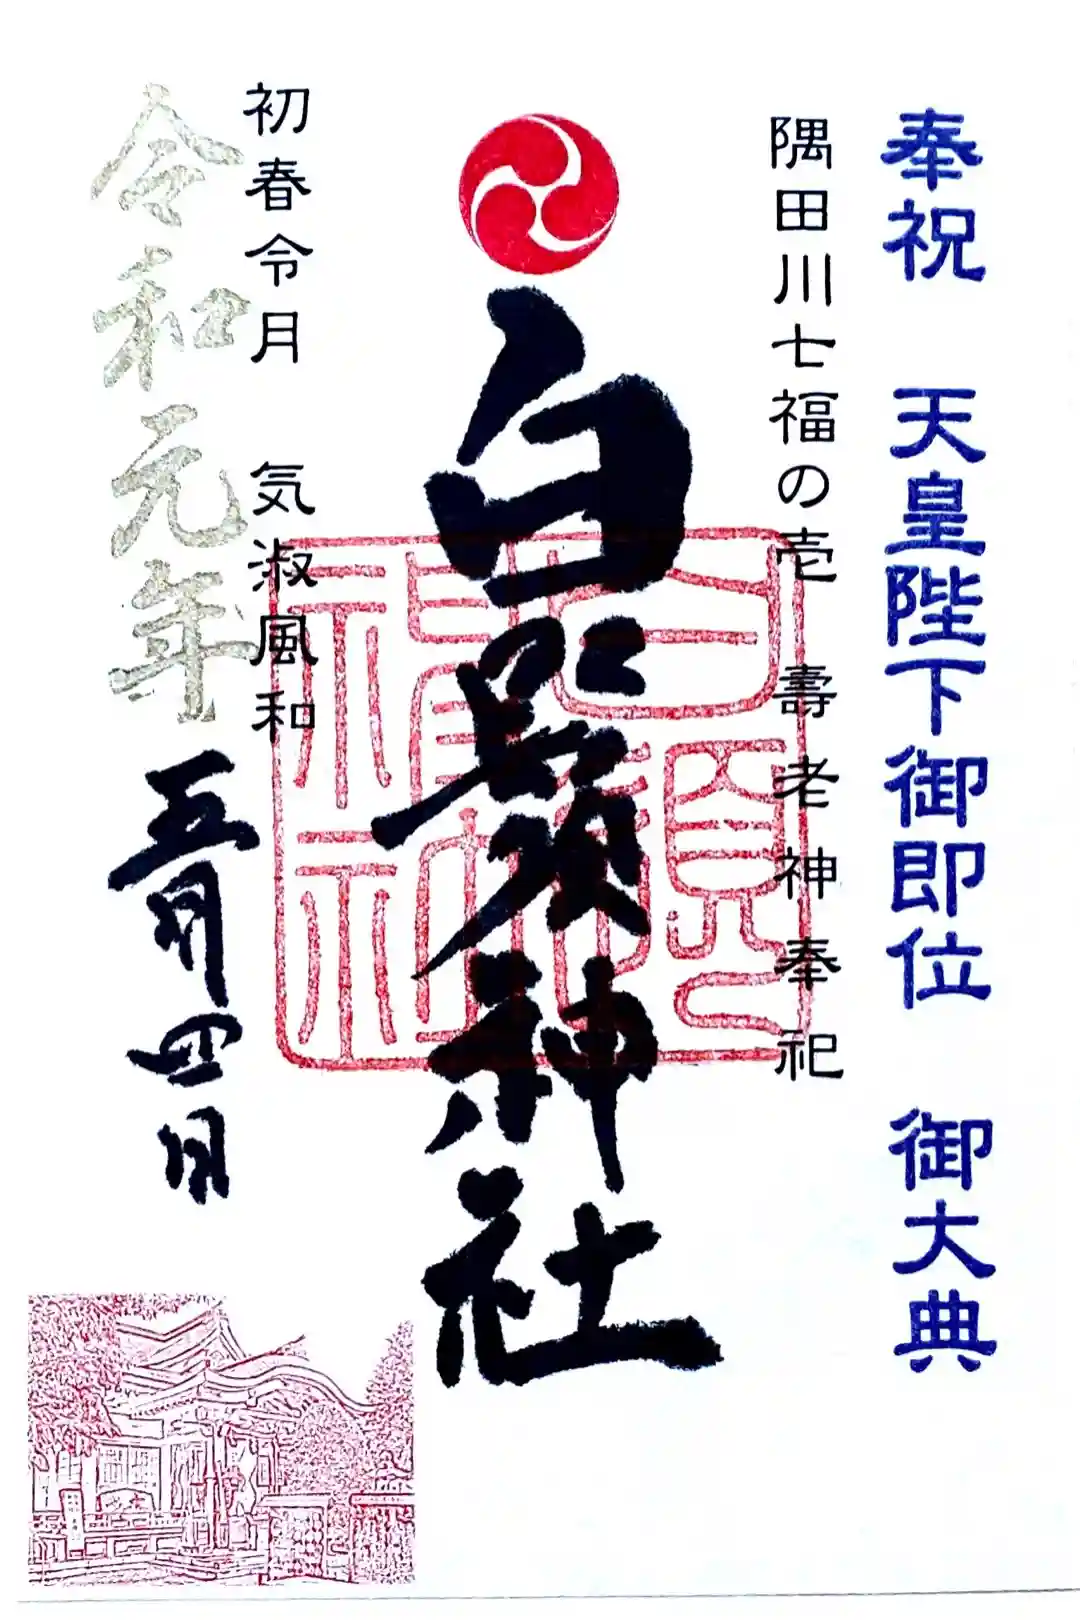 奉祝　天皇陛下御即位　御大典
隅田川七福の壱　壽老神奉祀
白鬚神社
白鬚神社
初春令月　気淑風和
令和元年五月四日